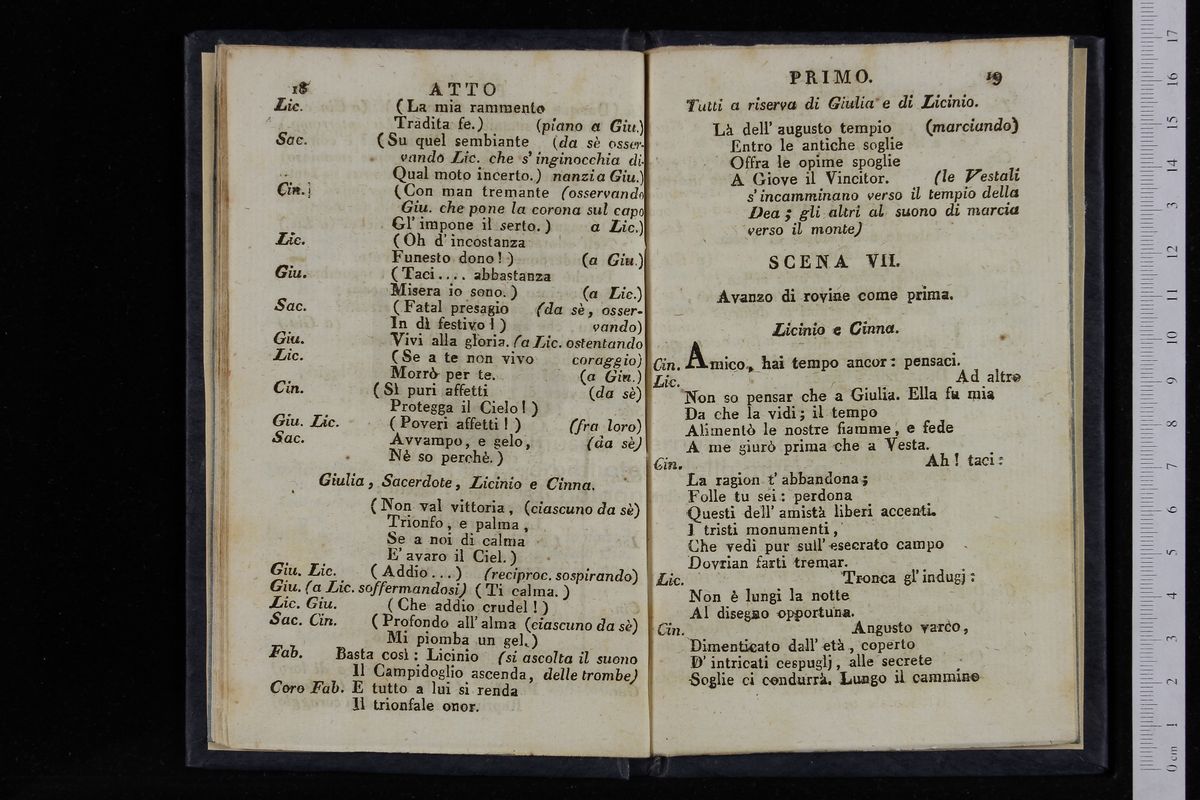 18 ATTO
Lic. (La mia rammento
Tradita fe.) (piano a Giu.)
Sac. (Su quel sembiante (da sè osser-
vando Lic. che s' inginocchia di-
Qual moto incerto.) nanzi a Giu.)
Cin.] (Con man tremante (osservando
Giu. che pone la corona sul capo
Gl' impone il serto.) a Lic.)
Lic. (Oh d' incostanza
Funesto dono!) (a Giu.)
Giu. (Taci.... abbastanza
Misera io sono.) (a Lic.)
Sac. (Fatal presagio (da sè, osser-
In dì festivo!) vando)
Giu. Vivi alla gloria. (a Lic. ostentando
Lic. (Se a te non vivo coraggio)
Morrò per te. (a Giu.)
Cin. (Sì puri affetti (da sè)
Protegga il Cielo!)
Giu. Lic. (Poveri affetti!) (fra loro)
Sac. Avvampo, e gelo, (da sè)
Nè so perchè.)
Giulia, Sacerdote, Licinio e Cinna.
(Non val vittoria, (ciascuno da sè)
Trionfo, e palma,
Se a noi di calma
E' avaro il Ciel.)
Giu. Lic. (Addio...) (reciproc. sospirando)
Giu. (a Lic. soffermandosi) (Ti calma.)
Lic. Giu. (Che addio crudel!)
Sac. Cin. (Profondo all' alma (ciascuno da sè)
Mi piomba un gel.)
Fab. Basta così: Licinio (si ascolta il suono
Il Campidoglio ascenda, delle trombe)
Coro Fab. E tutto a lui si renda
Il trionfale onor.
PRIMO. 19
Tutti a riserva di Giulia e di Licinio.
Là dell' augusto tempio (marciando)
Entro le antiche soglie
Offra le opime spoglie
A Giove il Vincitor. (le Vestali
s' incamminano verso il tempio della
Dea; gli altri al suono di marcia
verso il monte)
SCENA VII.
Avanzo di rovine come prima.
Licinio e Cinna.
Cin. Amico, hai tempo ancor: pensaci.
Lic. Ad altro
Non so pensar che a Giulia. Ella fu mia
Da che la vidi; il tempo
Alimentò le nostre fiamme, e fede
A me giurò prima che a Vesta.
Cin. Ah! taci:
La ragion t' abbandona;
Folle tu sei: perdona
Questi dell' amistà liberi accenti.
I tristi monumenti,
Che vedi pur sull' esecrato campo
Dovrian farti tremar.
Lic. Tronca gl' indugj:
Non è lungi la notte
Al disegno opportuna.
Cin. Angusto varco,
Dimenticato dall' età, coperto
D' intricati cespuglj, alle secrete
Soglie ci condurrà. Lungo il cammino
0 cm 1 2 3 4 5 6 7 8 9 10 11 12 13 14 15 16 17